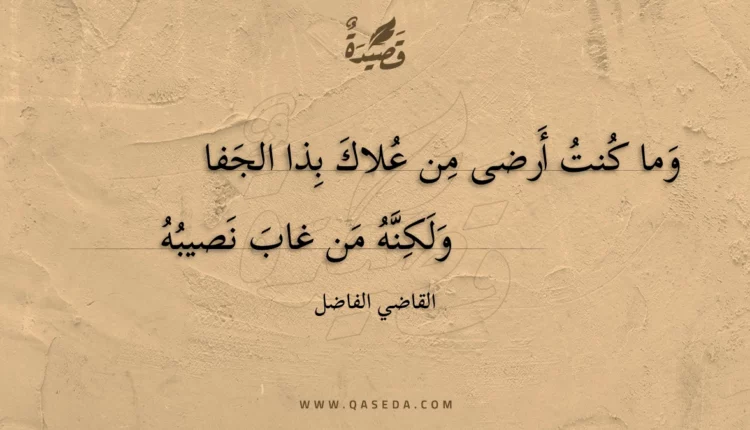 قَصِيدَةٌ
وَما كُنتُ أَرضى مِن عُلاكَ بِذا الجَفا
وَلَكِنَّهُ مَن غابَ غابَ نَصيبُهُ
القاضي الفاضل
WWW.QASEDA.COM